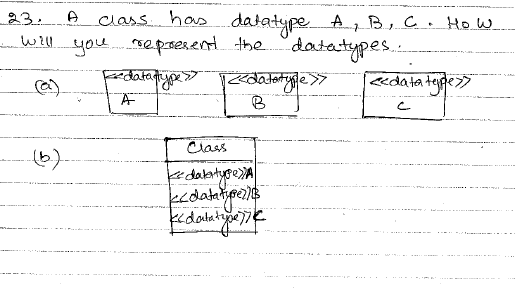 23. A class has datatype A, B, C. How
will you represent the datatypes.
(a) <<datatype>> <<datatype>> <<datatype>>
A B C
(b) Class
<<datatype>>A
<<datatype>>B
<<datatype>>C